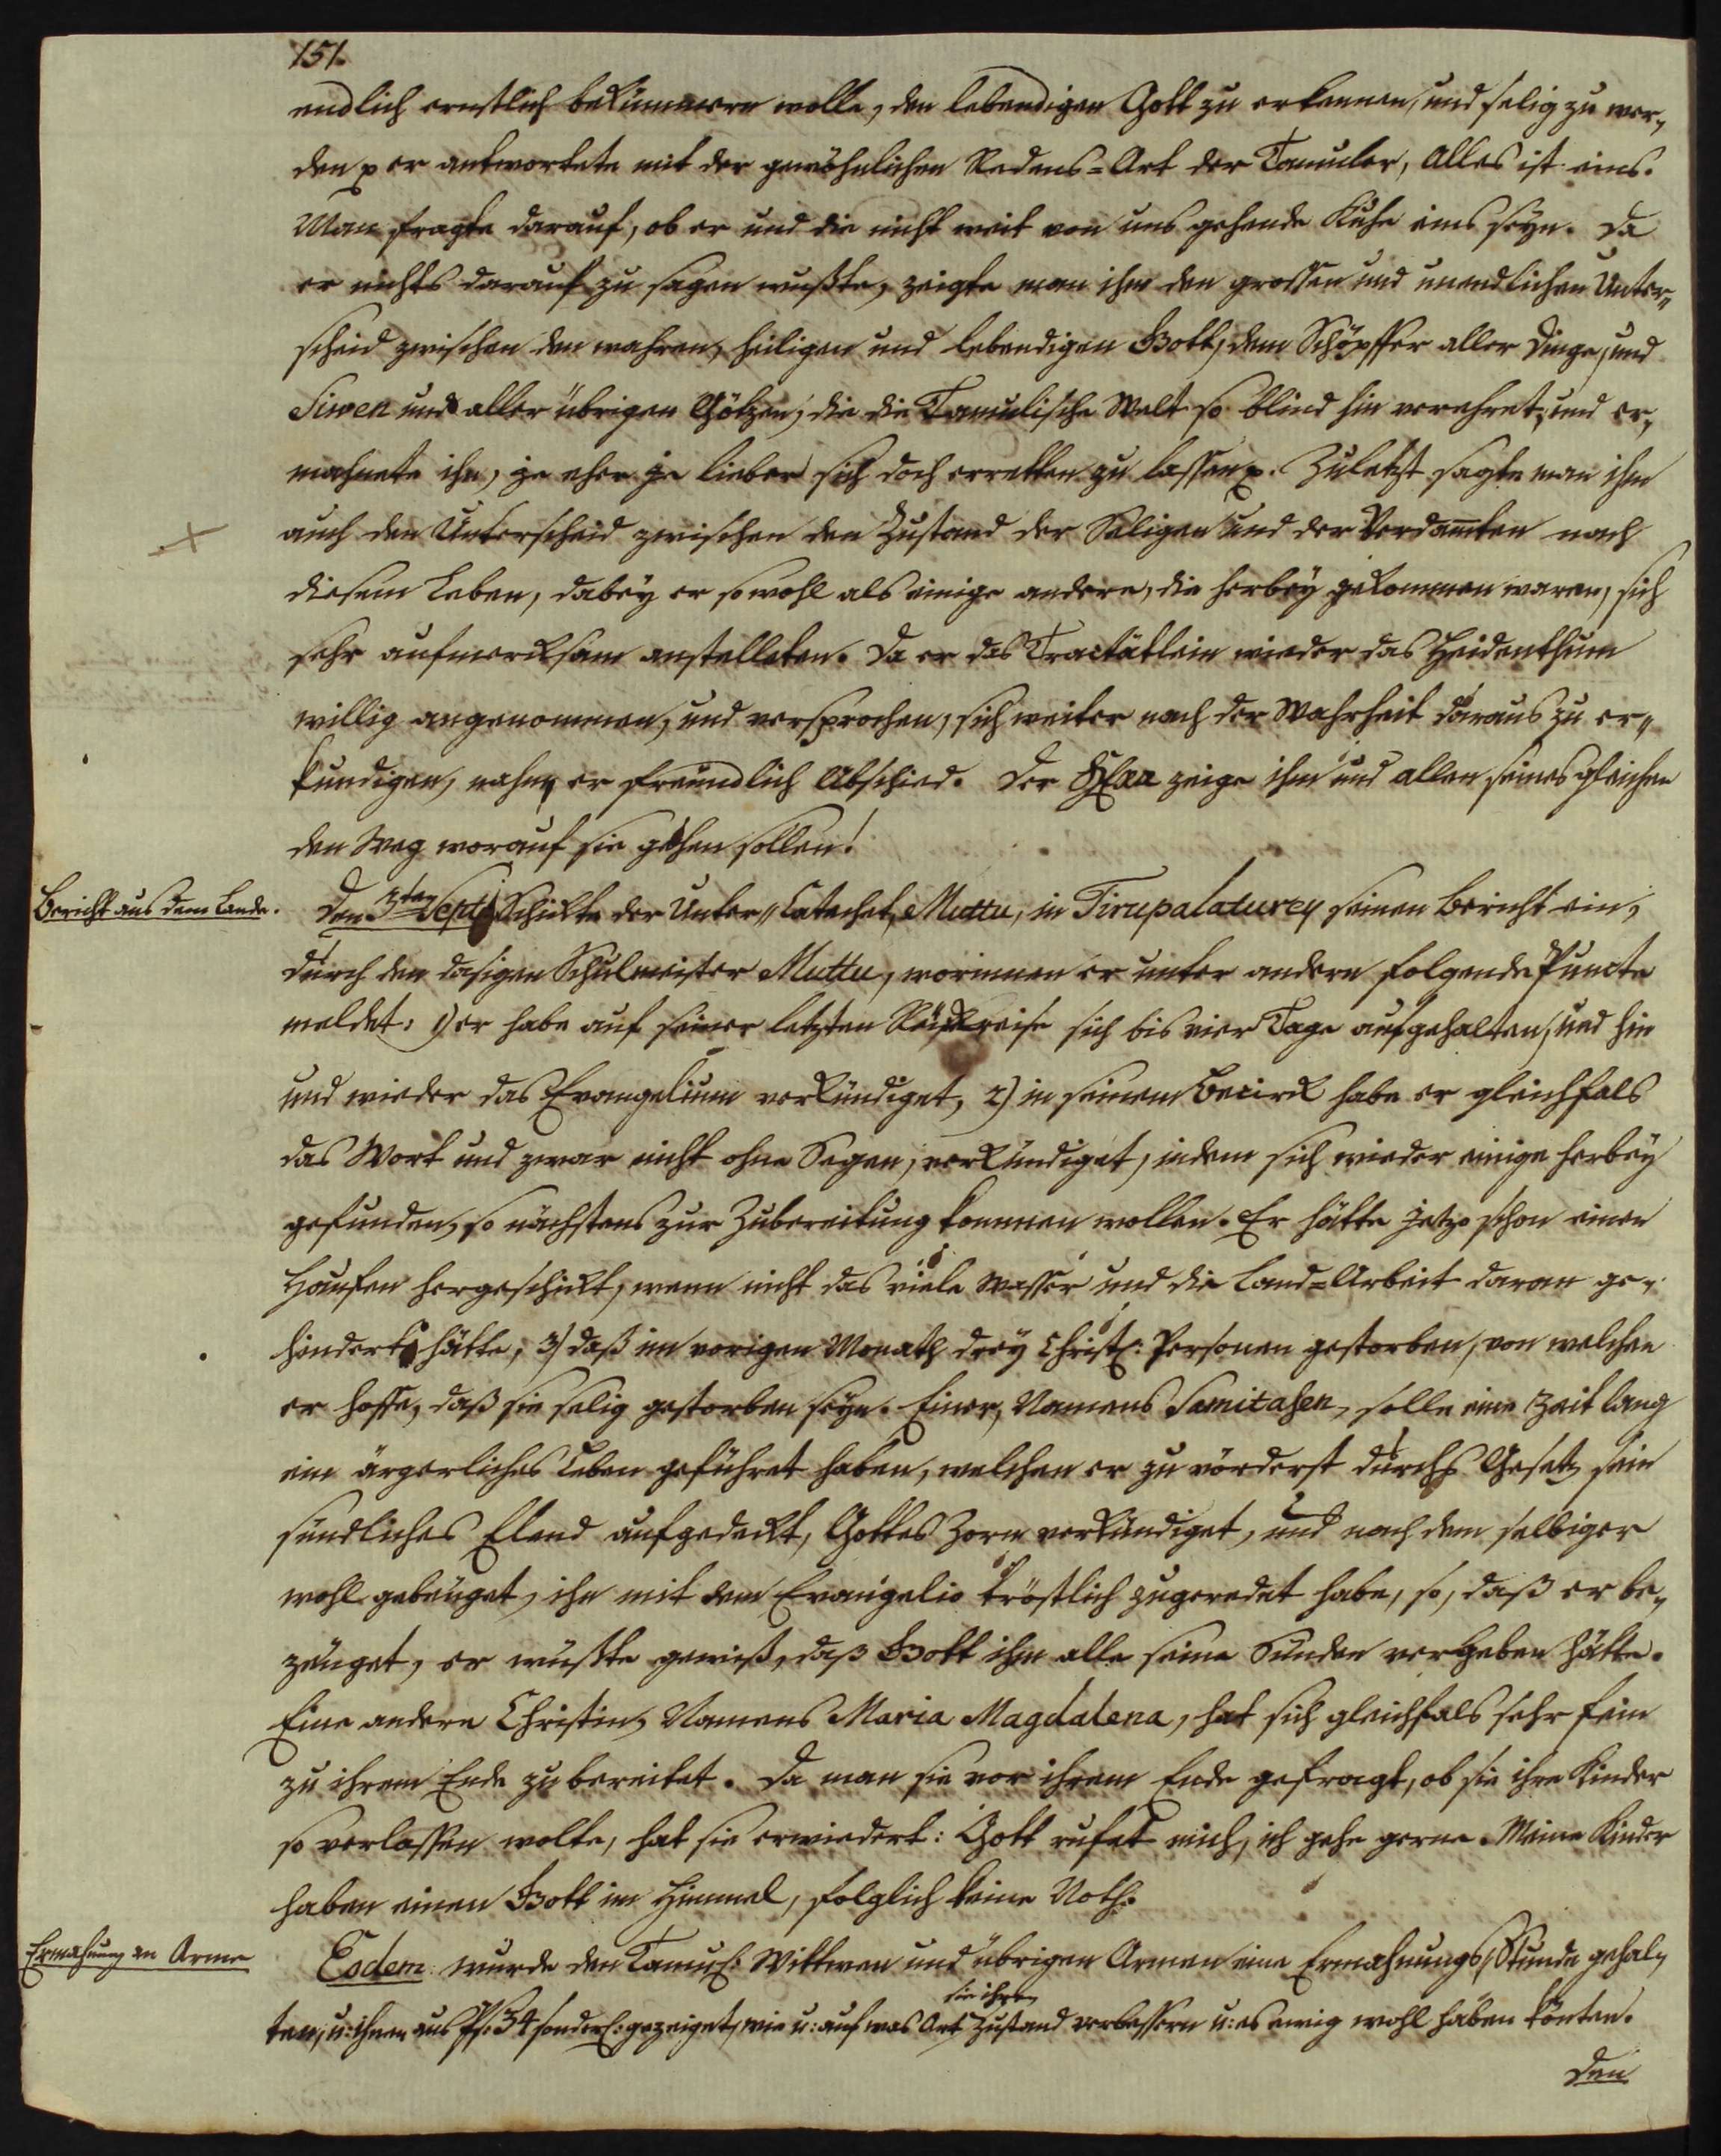 151.
endlich ernstlich bekümmern wolle, den lebendigen Gott zu erkennen, und selig zu wer„
den p er antwortete mit der gewöhnlichen Redens=Art der Tamuler, Alles ist eins.
Man fragte darauf, ob er und die nicht weit von uns gehende Kuhe eins seyn. Da
er nichts darauf zu sagen wußte, zeigte man ihm den grossen und unendlichen Unter„
scheid zwischen den wahren, heiligen und lebendigen Gott, dem Schöpffer aller Dinge, und
Siwen und aller übrigen Götzen, die die Tamulische Welt so blind hin verehret, und er„
mahnete ihn, je eher je lieber sich doch erretten zu lassen p. Zuletzt sagte man ihm
auch den Unterscheid zwischen den Zustand der Seligen und der Verdamten nach
diesem Leben, dabey er sowohl als einige andere, die herbey gekommen waren, sich
sehr aufmercksam anstelleten. Da er das Tractätlein wieder das Heidenthum
willig angenommen, und versprochen, sich weiter nach der Wahrheit daraus zu er„
kundigen, nahm er freundlich Abschied. Der HErr zeige ihm und allen seines gleichen
den Weg worauf sie gehen sollen!
Bericht aus dem Lande.
Den 3ten Sept. Schickte der Unter„Catechet, Muttu, in Tirupalaturey seinen Bericht ein,
durch den dasigen Schulmeister Muttu, worinnen er unter andern folgende Puncte
meldet: 1) er habe auf seiner letzten Rückreise sich bis vier Tage aufgehalten, und hin
und wieder das Evangelium verkündiget, 2) in seinem Becirck habe er gleichfals
das Wort und zwar nicht ohne Segen, verkündiget, indem sich wieder einige herbey
gefunden, so nächstens zur Zubereitung kommen wollen. Er hätte jetzo schon einen
Haufen hergeschickt, wenn nicht das viele Wasser und die Land=Arbeit daran ge„
hindert hätte, 3) daß im vorigen Monath drey Christl: Personen gestorben, von welchen
er hoffe, daß sie selig gestorben seyn. Einer, Namens Samitasen, solle eine Zeit lang
ein ärgerliches Leben geführet haben, welchen er zu vörderst durchs Gesetz sein
sündliches Elend aufgedeckt, Gottes Zorn verkündiget, und nach dem selbiger
wohl gebeuget, ihn mit dem Evangelio tröstlich zugeredet habe, so, daß er be„
zeuget, er wüßte gewiß, daß Gott ihm alle seine Sünden vergeben hätte.
Eine andere Christin, Namens Maria Magdalena, hat sich gleichfals sehr fein
zu ihrem Ende zubereitet. Da man sie vor ihrem Ende gefragt, ob sie ihre Kinder
so verlassen wolte, hat sie erwiedert: Gott rufet mich, ich gehe gerne. Meine Kinder
haben einen Gott im Himmel, folglich keine Noth.
Ermahnung an Arme
Eodem wurde den Tamul: Wittwen und übrigen Armen eine Ermahnungs Stunde gehal„
ten, u: ihnen aus Ps: 34 sonderl: gezeiget, wie u: auf was Art sie ihren Zustand verbessern u: es ewig wohl haben könten.
Den